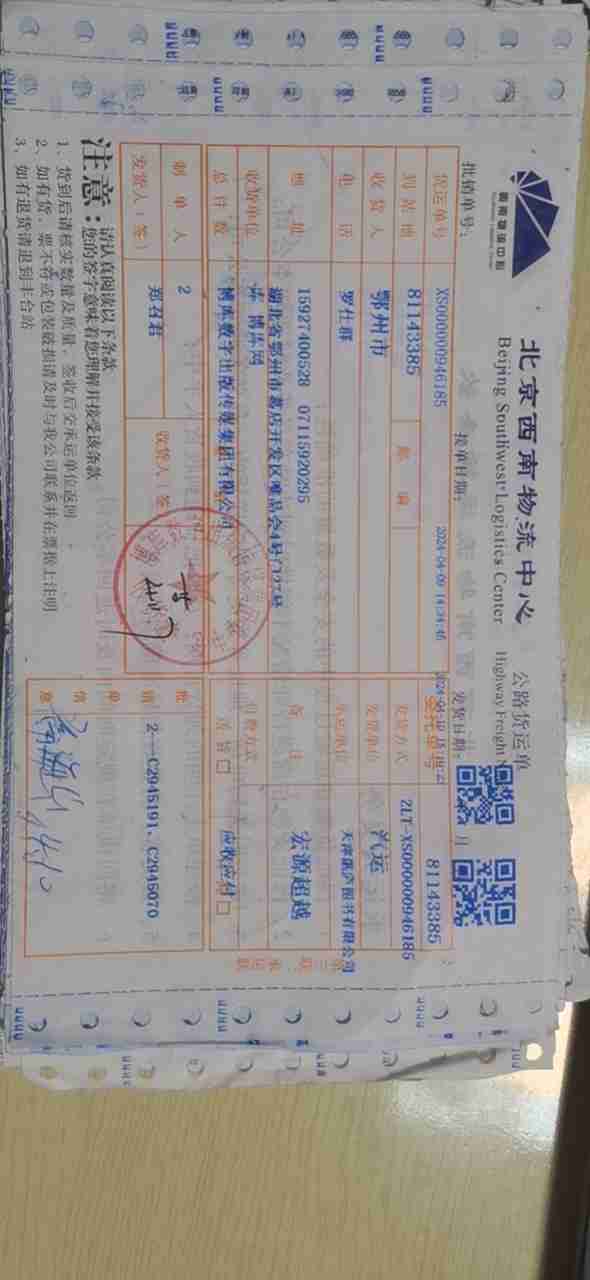 北京西南物流中心
Beijing Southwest Logistics Center
公路货运单
Highway Freight
西南物流中心
批销单号：
接单日期：
2024-04-09 14:24:46
发货日期：
月
货运单号 XS000000946185
委托单号 81143385
到站地 81143385
邮编
发货方式 ZLT-XS000000946185
收货人 鄂州市
发货单位 汽运
电话 罗仕群
地址 15927400528 07115920295
备注 宏源超越
湖北省鄂州市葛店开发区唯品会4号门27栋
收货单位 库 博库网
付费方式
总件数 博库数字出版传媒集团有限公司
送货□ 应收应付□
制单人 2
发货人（签） 郑召君
收货人（签
批销单信息
2--C2945191、C2945070
第三联：承运联
注意：
请认真阅读以下条款
您的签字意味着您理解并接受该条款
1、货到后请核实数量及质量，签收后交承运单位返回
2、如有货、票不符或包装破损请及时与我公司联系并在票据上注明
3、如有退货请退到丰台站